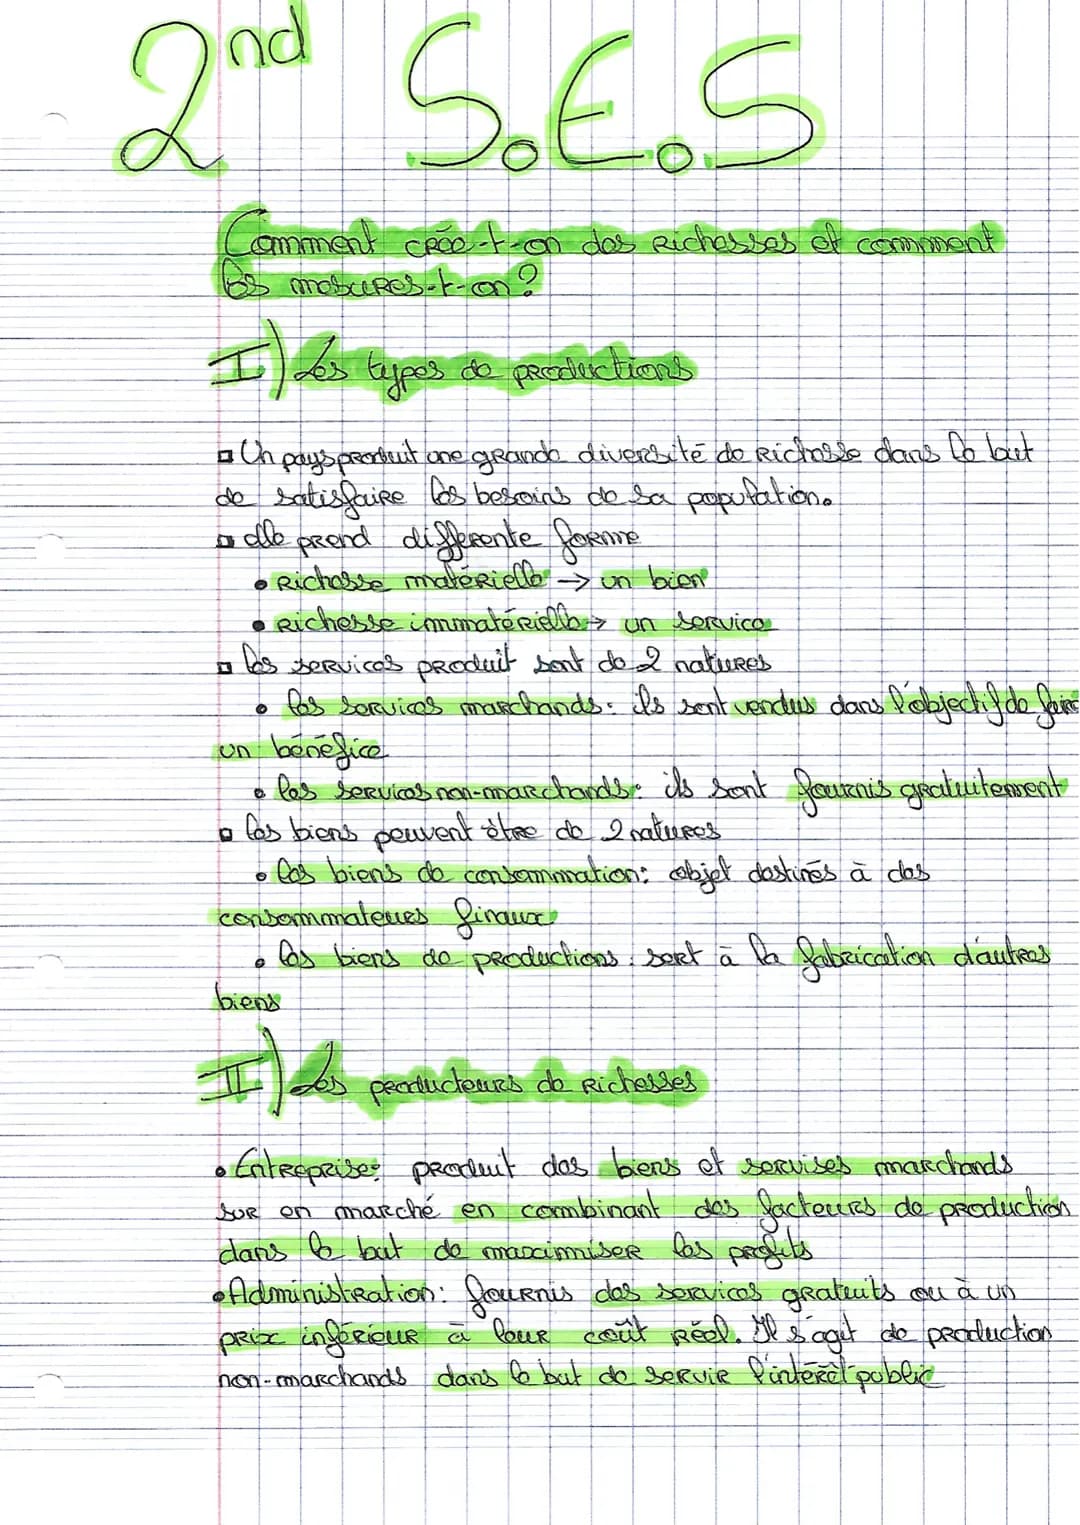 2nd S.E.S
Comment crée-t-on des richesses et comment
les mesures-t-on?
I) Les types de productions
Un pays produit une grande diversité de Richesse dans le but
de satisfaire les besoins de sa population.
elle prend differente forme
• Richesse matérielle → un bien
• Richesse immatérielle → un service
les services produit sont de 2 natures
• les services marchands: ils sont vendus dans l'objectif de faire
un bénéfice
• les services non-marchands: ils sont fournis gratuitement
les biens peuvent être de 2 natures
• les biens de consommation: objet destinés à des
consommateurs finaux
• les biens de productions: sert à la fabrication d'autres
biens
II) Les producteurs de Richesses
• Entreprise: produit des biens et servises marchands
sur en marché en combinant des facteurs de production
dans le but de maximiser les profits
• Administration: fournis des services gratuits ou à un
prix inférieur à leur coût réel. Il s'agit de production
non-marchands dans le but de servir l'intérêt public